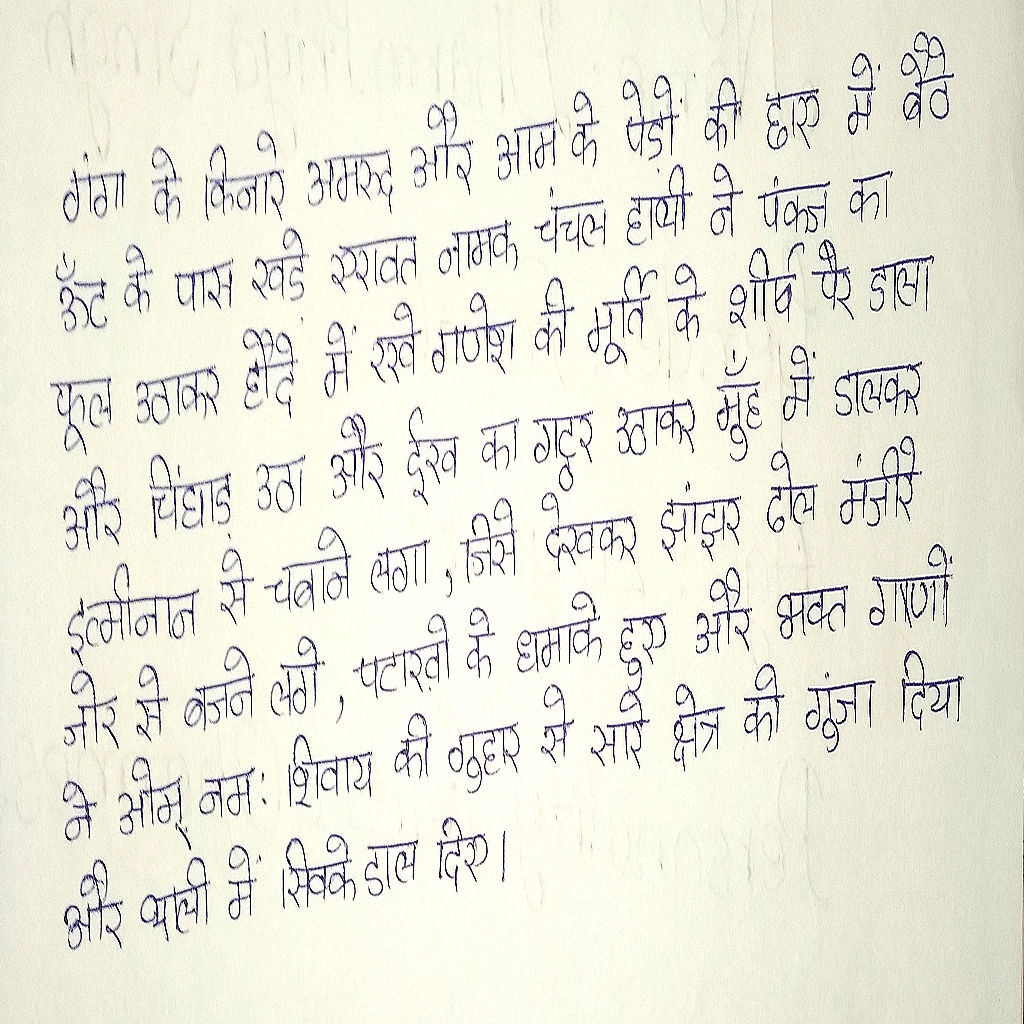 गंगा के किनारे अमरुद और आम के पेड़ों की छाए में बैठे
ऊँट के पास खड़े एरावत नामक चंचल हाथी ने पंकज का
फूल उठाकर हौदे में रखे गणेश की मूर्ति के शीर्ष पैर डाला
और चिंघाड़ उठा और ईख का गट्ठर उठाकर मुँह में डालकर
इत्मीनान से चबाने लगा, जिसे देखकर झांझर ढोल मंजीरे
जोर से बजने लगे, पटाख़ो के धमाके हुए और भक्त गाणों
ने ओम् नमः शिवाय की गुहार से सारे क्षेत्र को गुंजा दिया
और थाली में सिक्के डाल दिए।